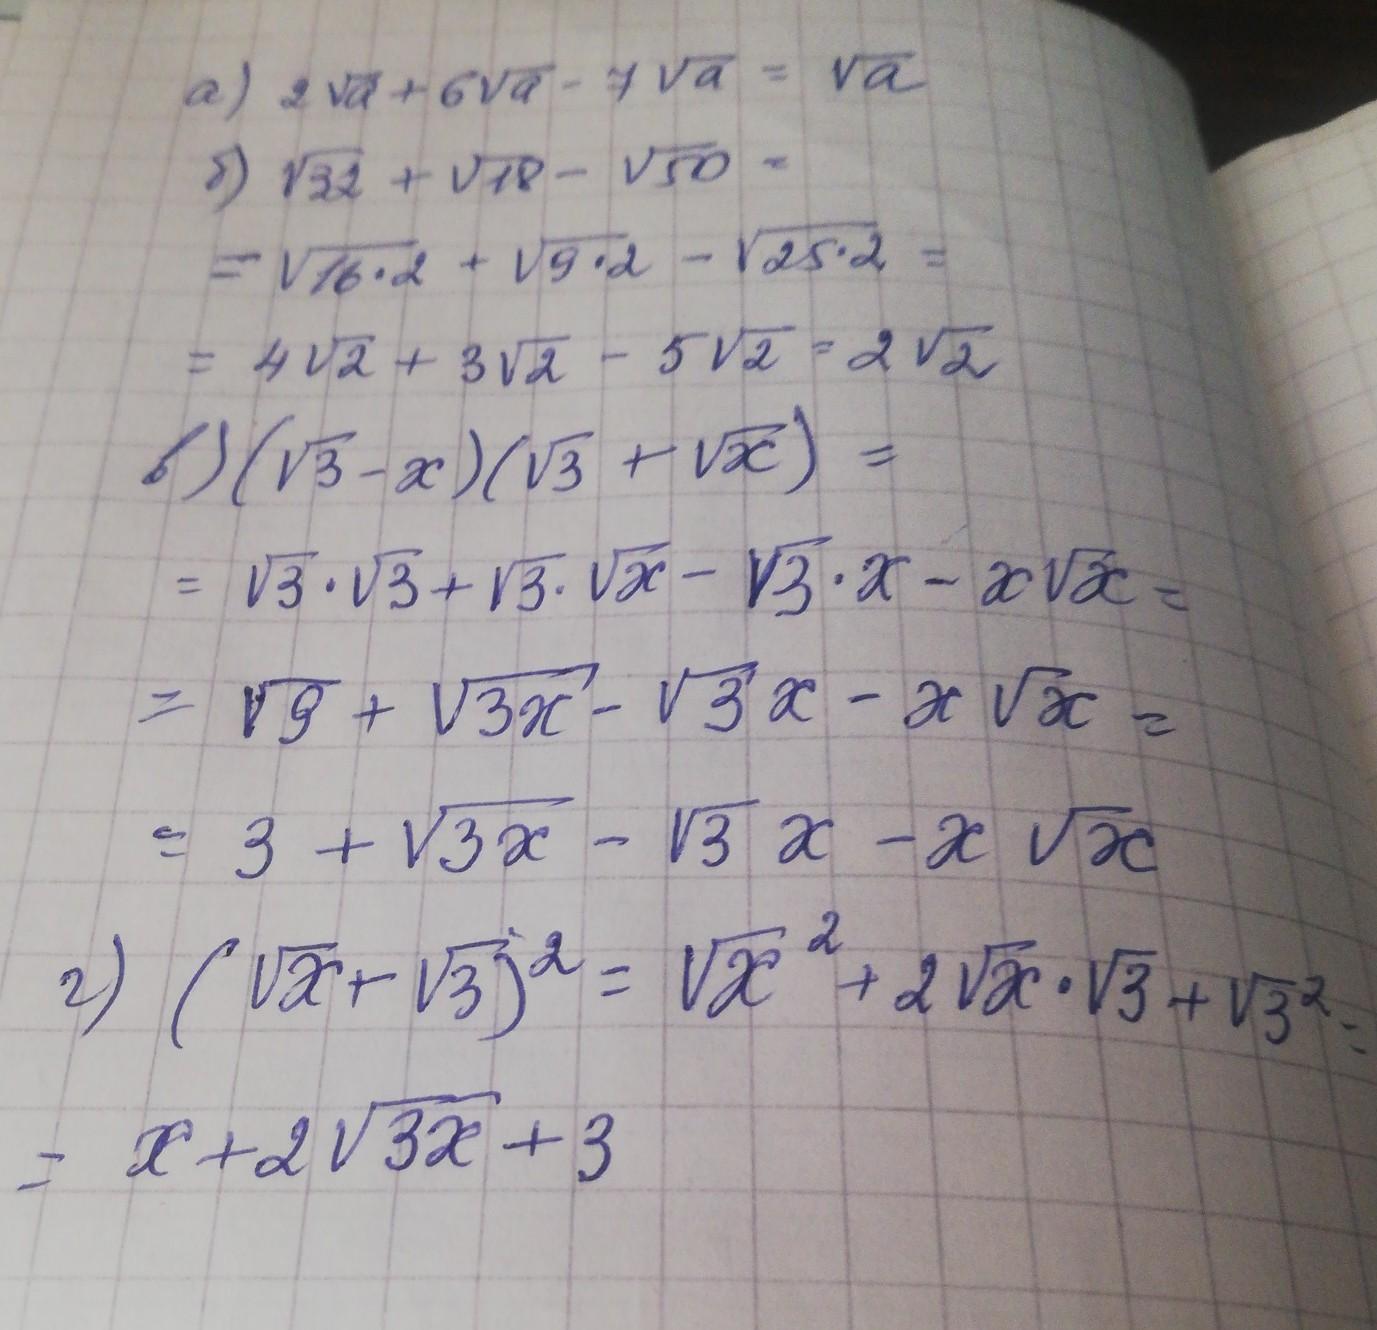 а) 2√a + 6√a - 7√a = √a
б) √32 + √18 - √50 =
= √16·2 + √9·2 - √25·2 =
= 4√2 + 3√2 - 5√2 = 2√2
в) (√3 - x)(√3 + √x) =
= √3·√3 + √3·√x - √3·x - x√x =
= √9 + √3x - √3 x - x√x =
= 3 + √3x - √3 x - x√x
г) (√x + √3)² = √x² + 2√x·√3 + √3² =
= x + 2√3x + 3